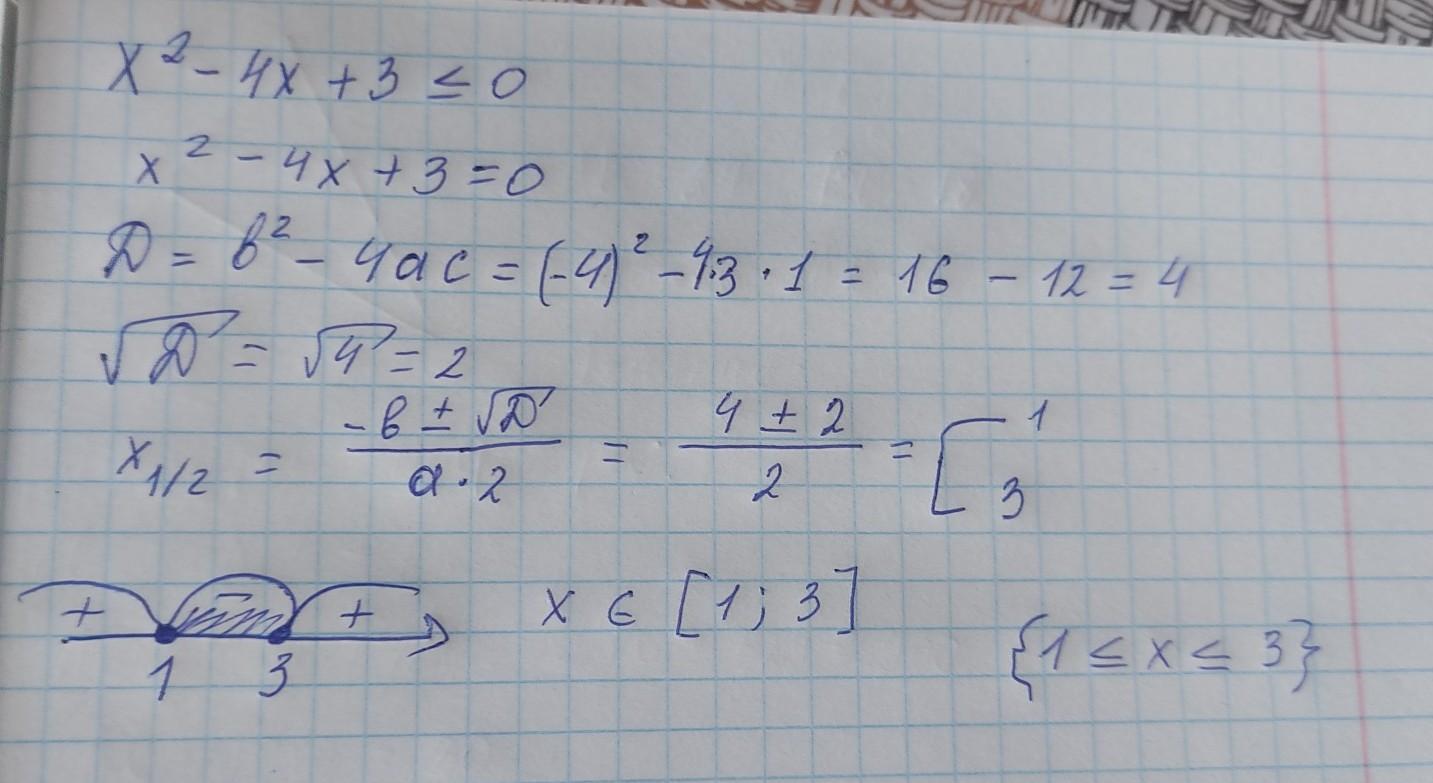 x² - 4x + 3 ≤ 0
x² - 4x + 3 = 0
D = b² - 4ac = (-4)² - 4·3 · 1 = 16 - 12 = 4
√D = √4 = 2
x₁/₂ = (-b ± √D)/(a·2) = (4 ± 2)/2 = [1 3
+ - +
x ∈ [1; 3]
1 3
{1 ≤ x ≤ 3}